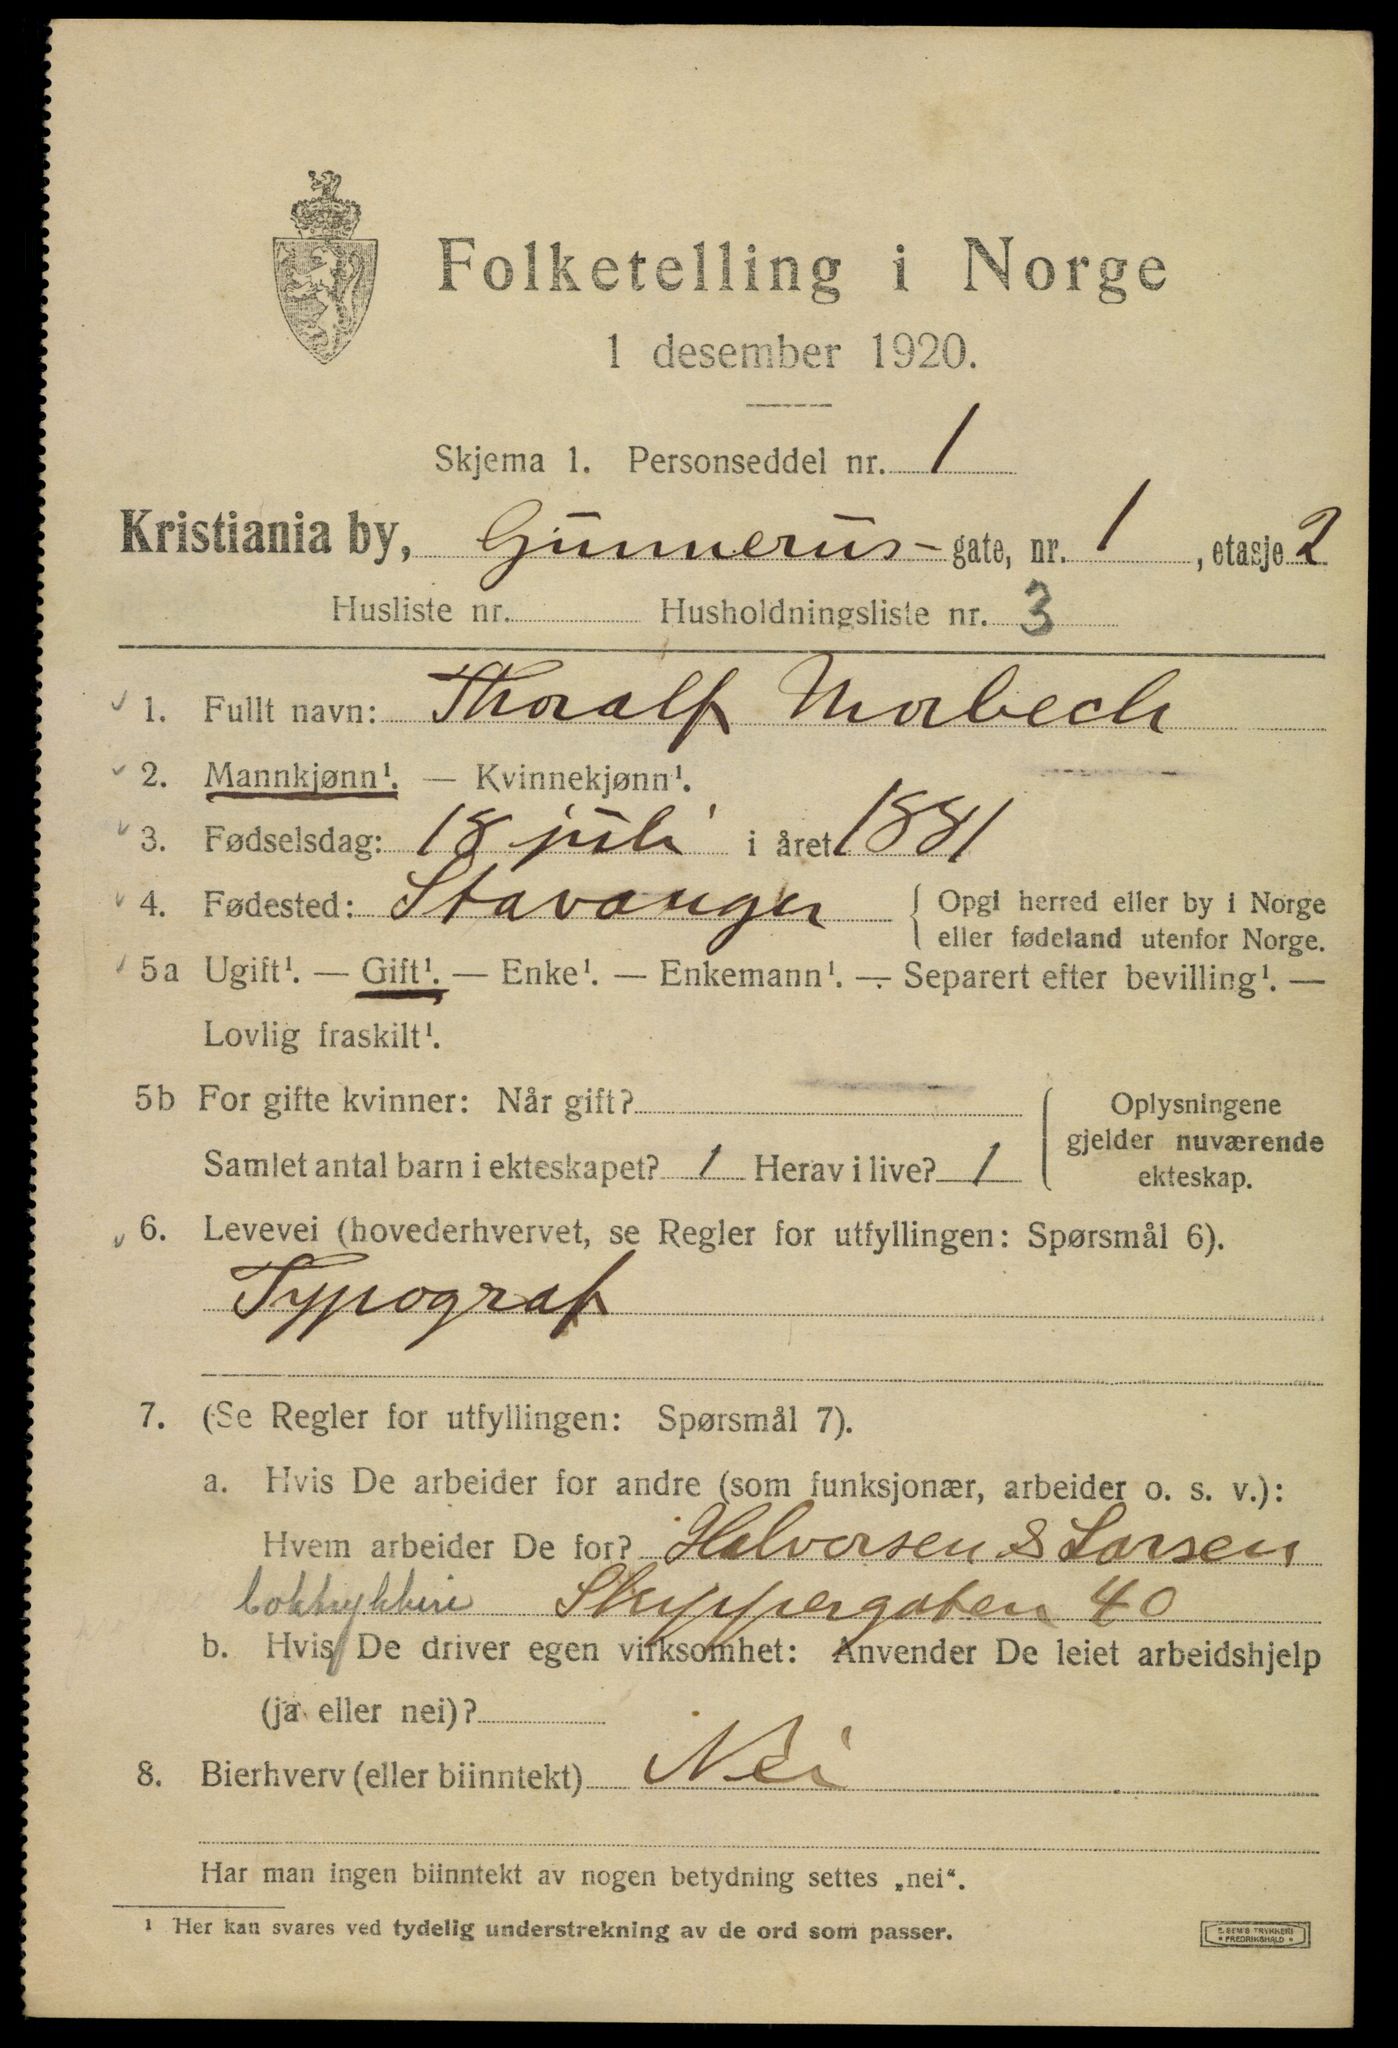 Folketelling i Norge
1 desember 1920.
Skjema 1. Personseddel nr. 1
Kristiania by, Gunnerus- gate, nr. 1, etasje 2
Husliste nr. Husholdningsliste nr. 3
1. Fullt navn: Thoralf Morbech
2. Mannkjønn¹. — Kvinnekjønn¹.
3. Fødselsdag: 18 juli i året 1881
4. Fødested: Stavanger { Opgi herred eller by i Norge
eller fødeland utenfor Norge.
5a Ugift¹. — Gift¹. — Enke¹. — Enkemann¹. — Separert efter bevilling¹. —
Lovlig fraskilt¹.
5b For gifte kvinner: Når gift? { Oplysningene
gjelder nuværende
ekteskap.
Samlet antal barn i ekteskapet? 1 Herav i live? 1
6. Levevei (hovederhvervet, se Regler for utfyllingen: Spørsmål 6).
Typograf
7. (Se Regler for utfyllingen: Spørsmål 7).
a. Hvis De arbeider for andre (som funksjonær, arbeider o. s. v.):
Hvem arbeider De for? Halvorsen & Larsen
Skippergaten 40
b. Hvis De driver egen virksomhet: Anvender De leiet arbeidshjelp
(ja eller nei)?
8. Bierhverv (eller biinntekt) Nei
Har man ingen biinntekt av nogen betydning settes „nei“.
¹ Her kan svares ved tydelig understrekning av de ord som passer.
E. SEM'S TRYKKERI
FREDRIKSHALD